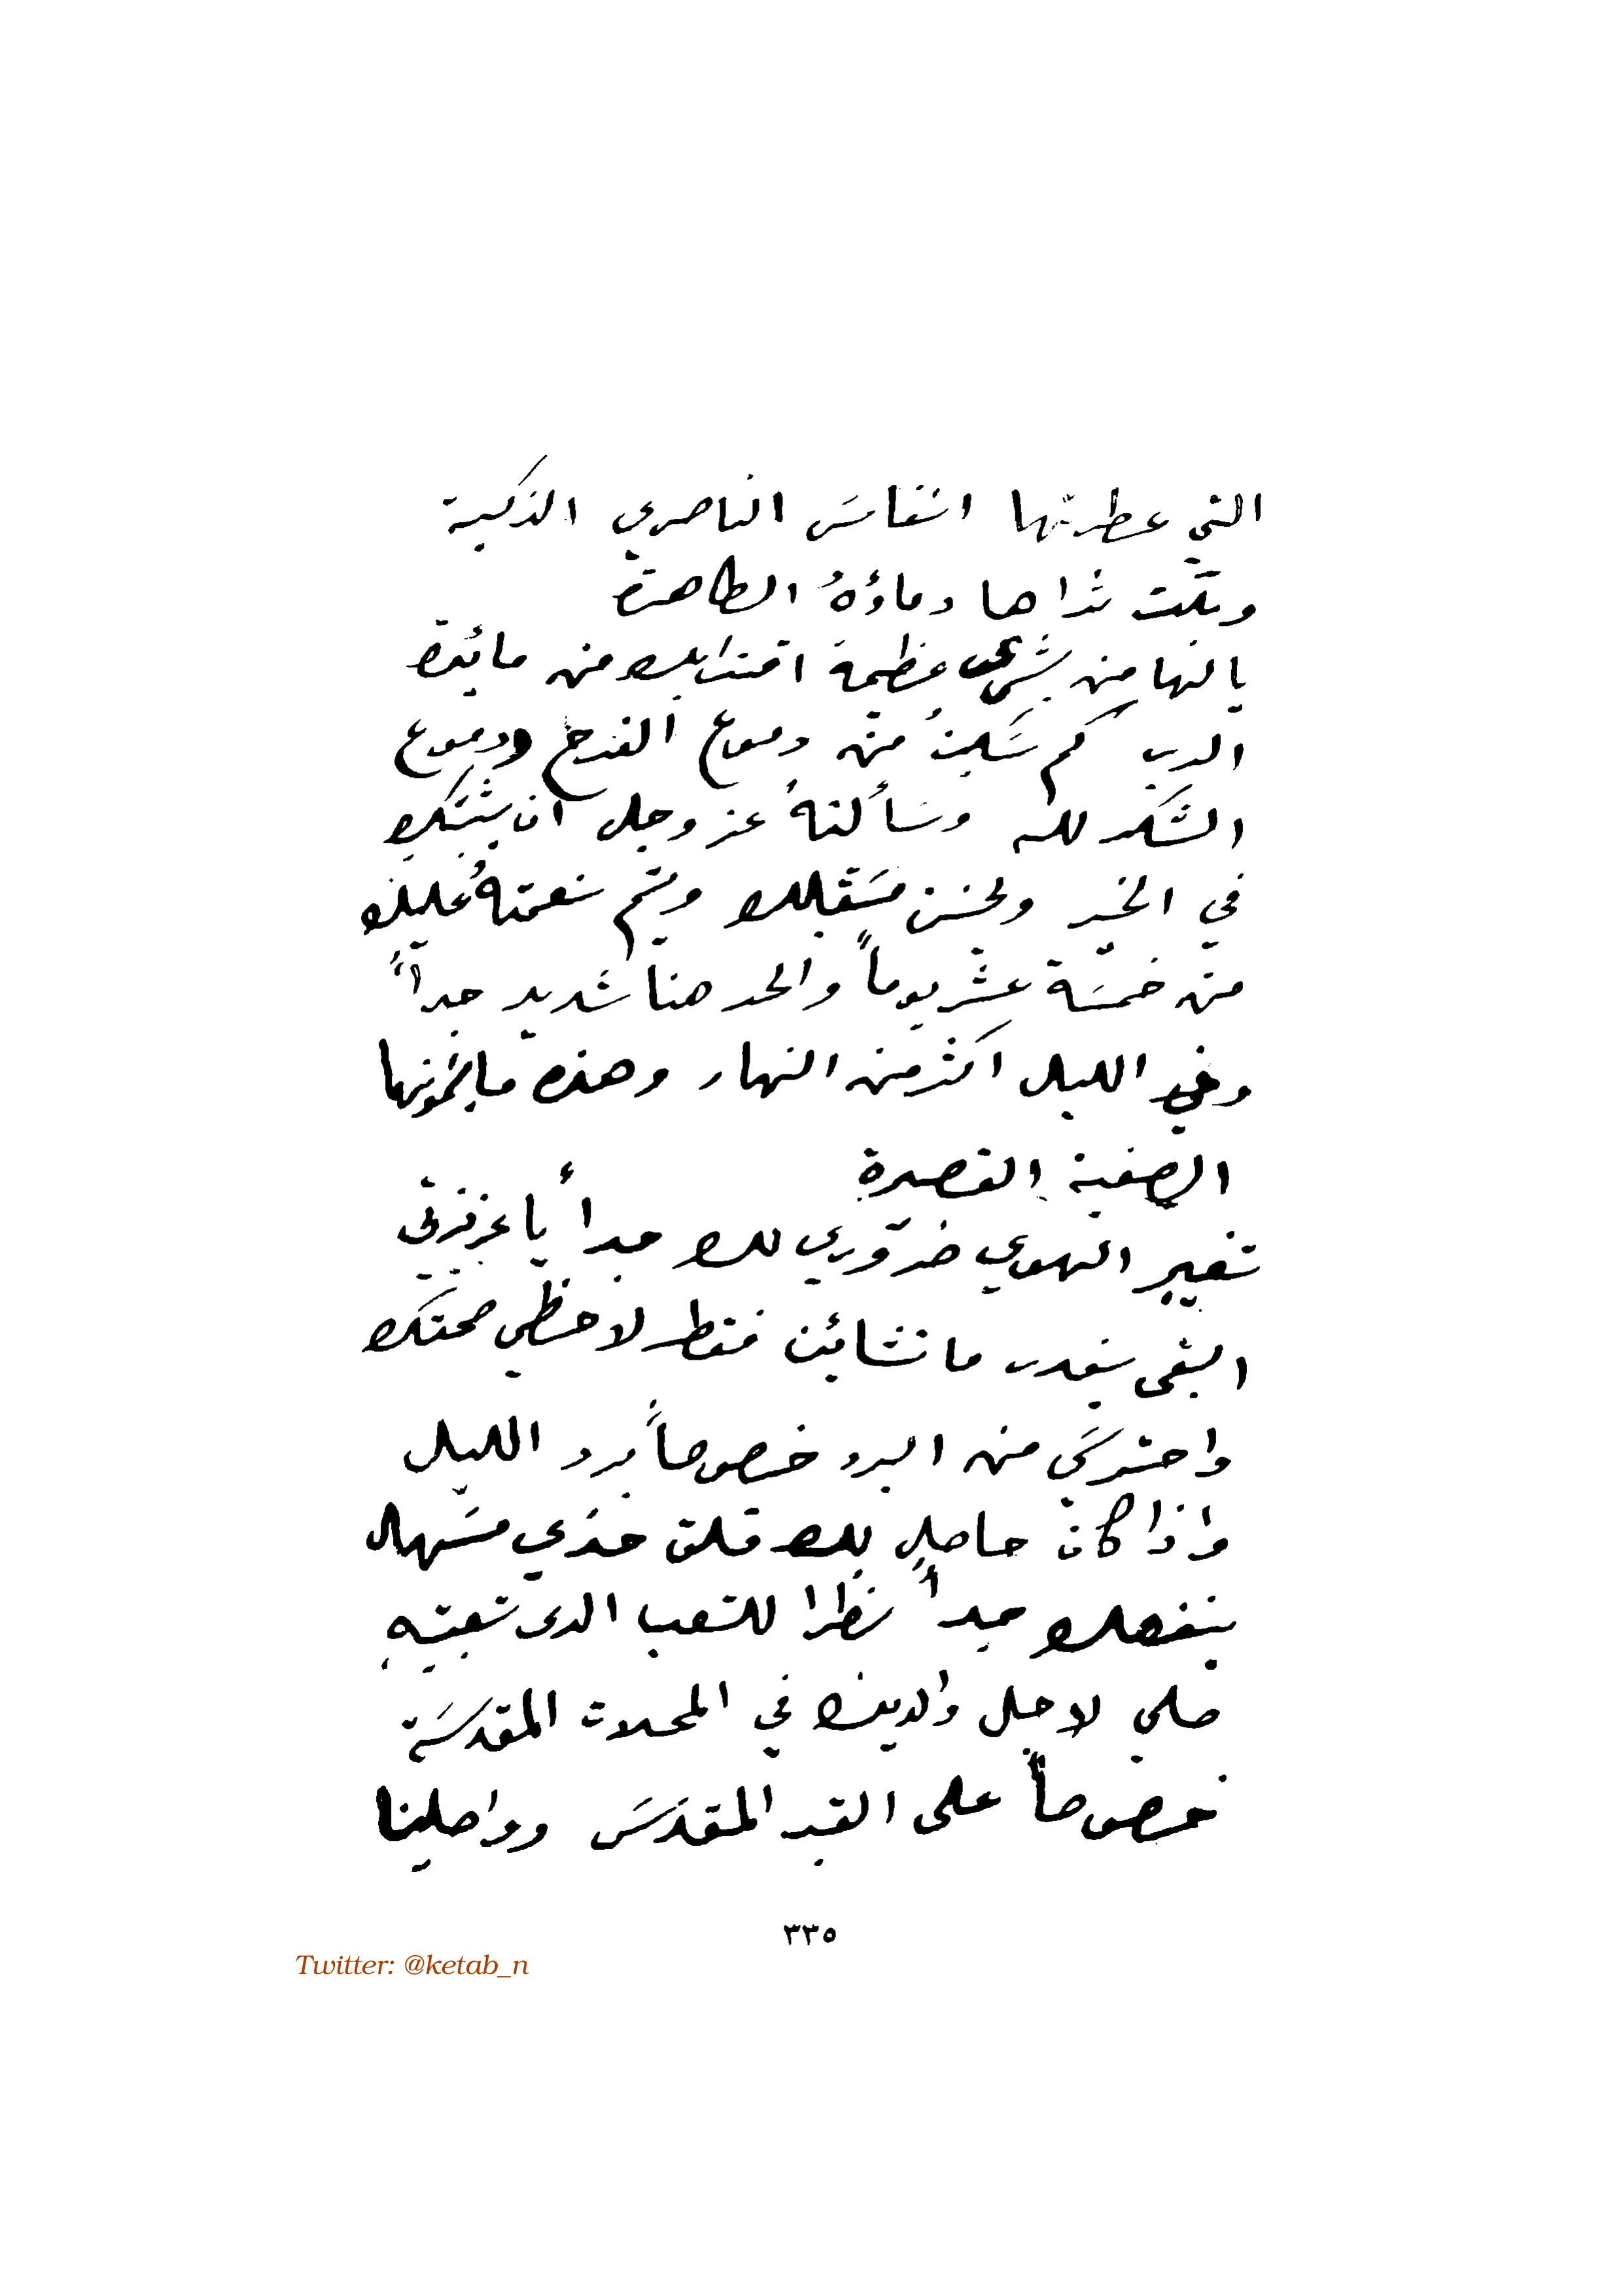 التي عطرتها انفاسَ الناصري الذكية
وبلّت ثراها دماؤهُ الطاهرة
يالها من بشرى عظيمة اقترابك من مائدة
الرب كم سَكبتُ من دموع الفرح ودموع
الشكر لله وسَألتهُ عز وجل ان يثبتك
في الخير ولحسن مسَتقبلك ويتم نعمتهُ عليك
من خمسَة عشر يوماً والحر هنا شديد جداً
وفي الليل اكثر من النهار وهذه ما يسمونها
الصيفية القصيرة
تغيير الهوى ضروري لك جداً يا عزيزتي
ابقي بقدر ما تشائين فقط لاحظي صحتك
واحترسَي من البرد خصوصاً برد الليل
واذا كان حاصل لك قلق خذي مسَهل
ينفعك جداً نظرا للتعب الذى تعبتيهِ
صلي لاجل والديك في المحلات المقدسَة
خصوصاً على القبر المقدسَ وواصلينا
٣٣٥
Twitter: @ketab_n